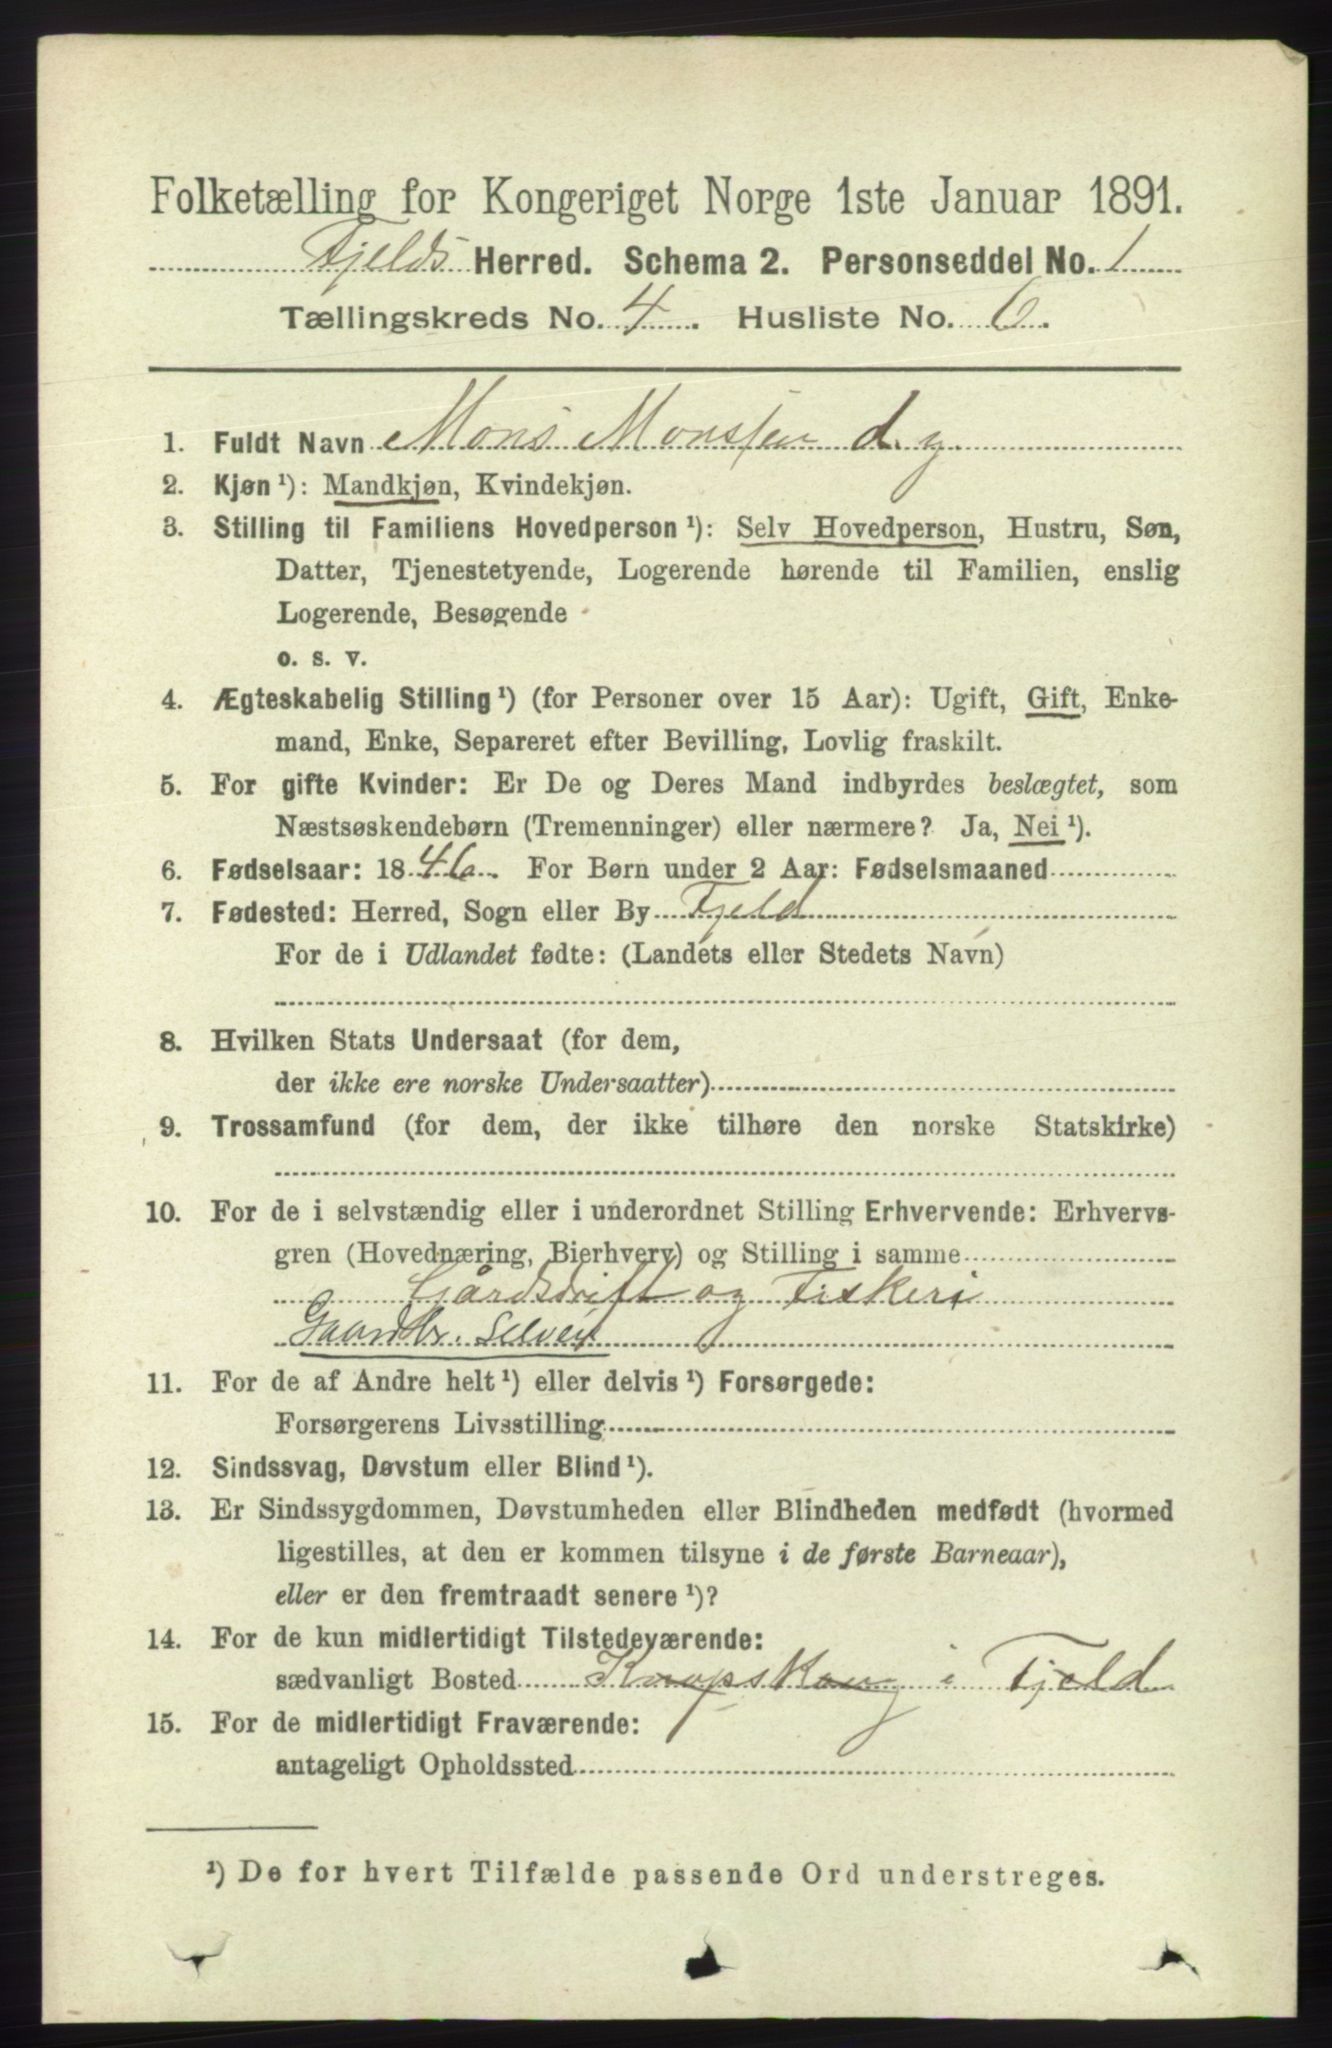 Folketælling for Kongeriget Norge 1ste Januar 1891.
Fjelds Herred. Schema 2. Personseddel No. 1
Tællingskreds No. 4. Husliste No. 6.
1. Fuldt Navn Mons Monssen d. y.
2. Kjøn ¹): Mandkjøn, Kvindekjøn.
3. Stilling til Familiens Hovedperson ¹): Selv Hovedperson, Hustru, Søn,
Datter, Tjenestetyende, Logerende hørende til Familien, enslig
Logerende, Besøgende
o. s. v.
4. Ægteskabelig Stilling ¹) (for Personer over 15 Aar): Ugift, Gift, Enke-
mand, Enke, Separeret efter Bevilling, Lovlig fraskilt.
5. For gifte Kvinder: Er De og Deres Mand indbyrdes beslægtet, som
Næstsøskendebørn (Tremenninger) eller nærmere? Ja, Nei ¹).
6. Fødselsaar: 1846. For Børn under 2 Aar: Fødselsmaaned
7. Fødested: Herred, Sogn eller By Fjeld
For de i Udlandet fødte: (Landets eller Stedets Navn)
8. Hvilken Stats Undersaat (for dem,
der ikke ere norske Undersaatter)
9. Trossamfund (for dem, der ikke tilhøre den norske Statskirke)
10. For de i selvstændig eller i underordnet Stilling Erhvervende: Erhvervs-
gren (Hovednæring, Bierhverv) og Stilling i samme
Gårdsdrift og Fiskeri
Gaardbr. Selveir
11. For de af Andre helt ¹) eller delvis ¹) Forsørgede:
Forsørgerens Livsstilling
12. Sindssvag, Døvstum eller Blind ¹).
13. Er Sindssygdommen, Døvstumheden eller Blindheden medfødt (hvormed
ligestilles, at den er kommen tilsyne i de første Barneaar),
eller er den fremtraadt senere ¹)?
14. For de kun midlertidigt Tilstedeværende:
sædvanligt Bosted i Fjeld
15. For de midlertidigt Fraværende:
antageligt Opholdssted
¹) De for hvert Tilfælde passende Ord understreges.